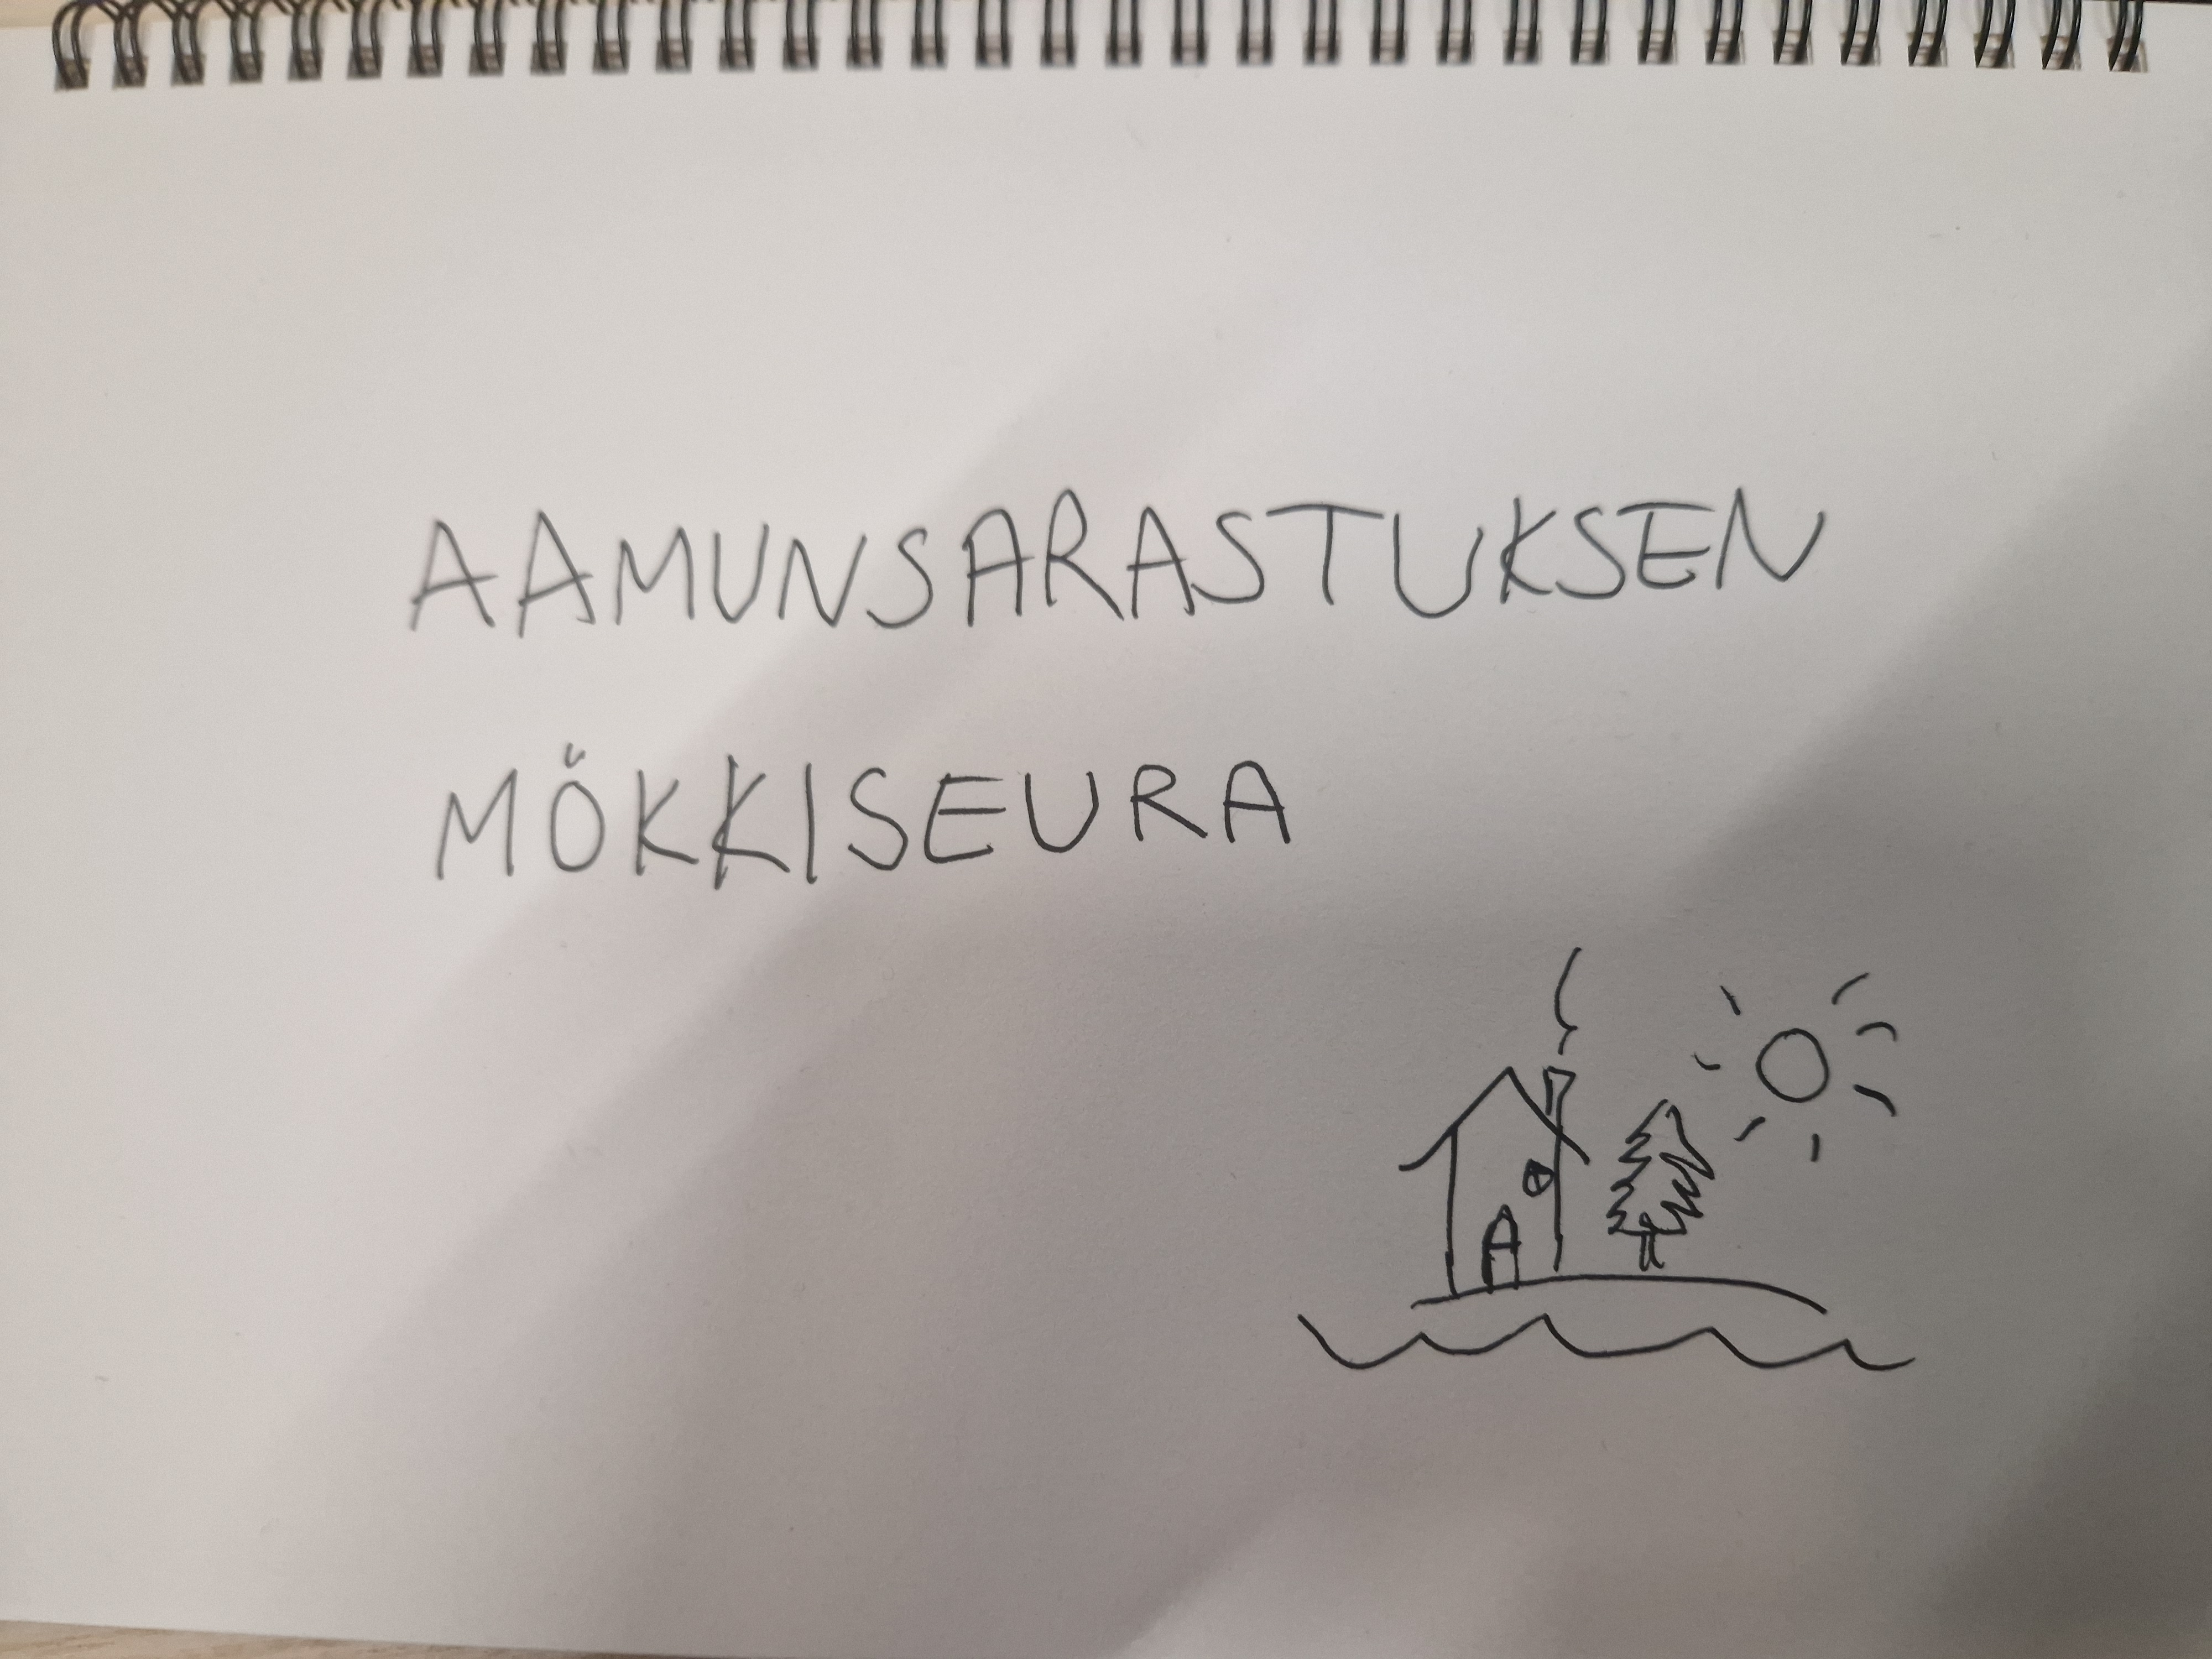 AAMUNSARASTUKSEN
MÖKKISEURA